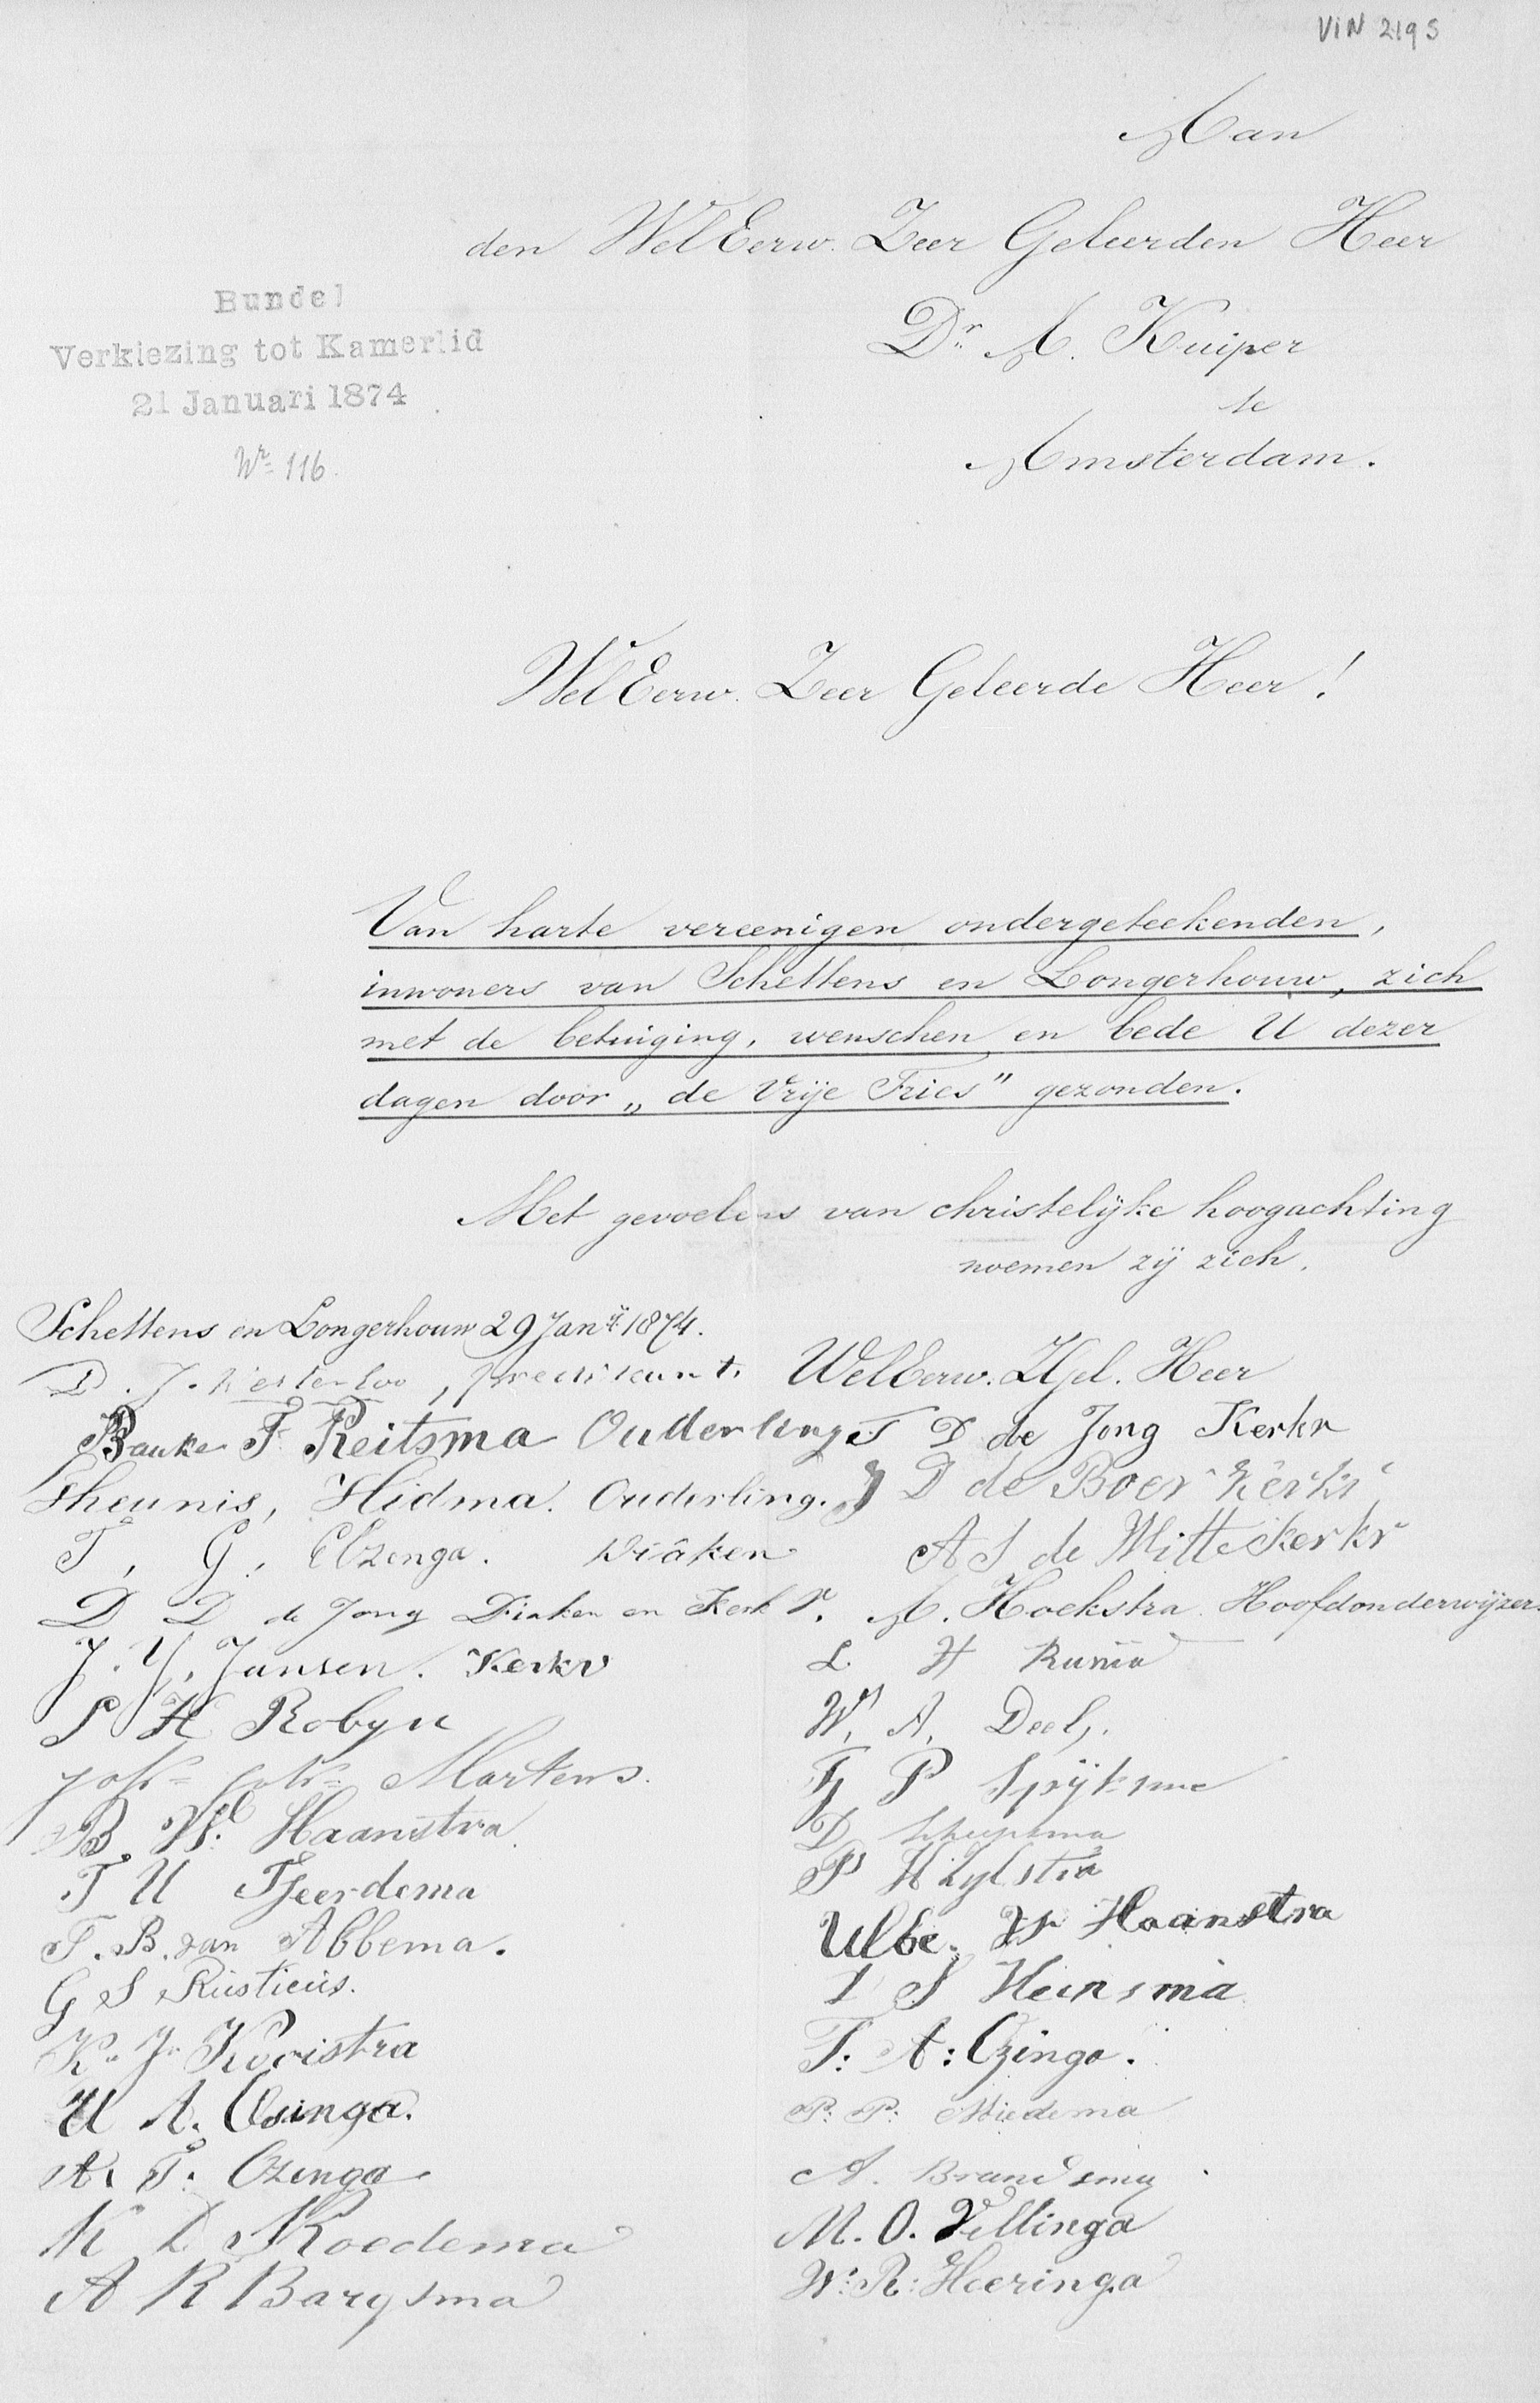 VIN 219 S
Aan
den WelEerw. Zeer Geleerden Heer
Dr. A. Kuiper
te
Amsterdam.
Bundel
Verkiezing tot Kamerlid
21 Januari 1874
Nr. 116.
WelEerw. Zeer Geleerde Heer!
Van harte vereenigen ondergeteekenden,
inwoners van Schettens en Longerhouw, zich
met de betuiging, wenschen en bede U dezer
dagen door „de Vrije Fries" gezonden.
Met gevoelens van christelijke hoogachting
noemen zij zich,
Schettens en Longerhouw 29 Jan. 1874.
D. J. predikant.
Bauke F. Reitsma Ouderling
Theunis, Hidma. Ouderling.
T, G, Elzenga. Diâken
D D de Jong Diaken en Kerkv.
J. Y. Jansen. Kerkv
P H Robyn
Martens.
B. W. Haanstra
T U Tjeerdema
T. B. van Abbema.
G S Rusticus.
K. J. Kooistra
U A. Osinga.
A. T. Ozinga
K D Roedema
A R Bargsma
WelEerw. ZGel. Heer
D de Jong Kerkv
D de Boer kerkv
A S de Witte Kerkv
A. Hoekstra Hoofdonderwijzer.
L. H
W. A. Deel,.
P Spijksma
D
P H Zylstra
Ulbe. W Haanstra
S Heinsma
T: A: Ozinga.
P: P: Miedema
A. Brandsma
M. O. Vellinga
W: R: Heeringa